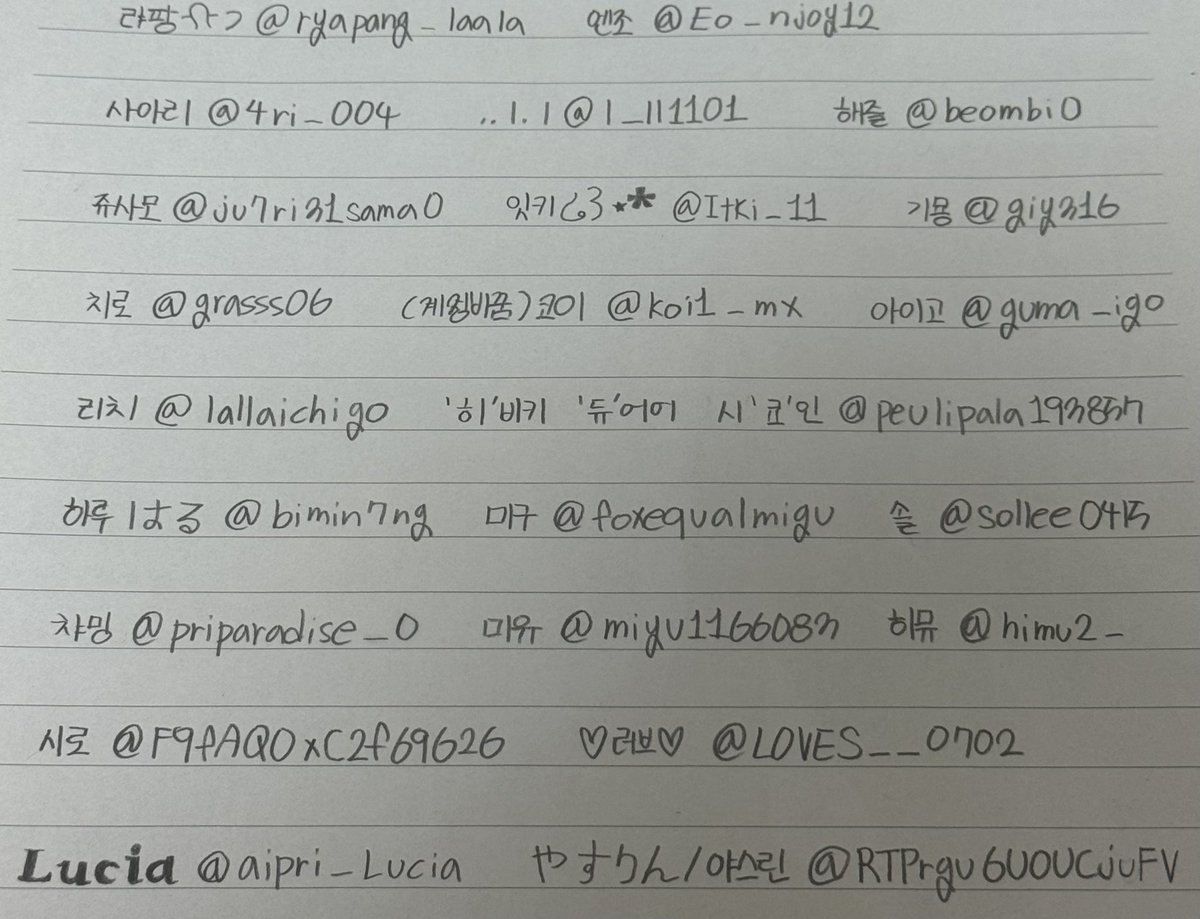 랴팡 @ryapang_laala 엔조 @Eo_njoy12
사아리 @4ri_004 ..l.l @l_ll1101 해즐 @beombi0
쥬사모 @ju7ri31sama0 잇키 @Itki_11 기몽 @giy316
치로 @grasss06 (계월바꿈)코이 @koi1_mx 아이고 @guma_igo
리치 @lallaichigo '히'비키 '듀'어어 시'쿄'인 @peulipala193857
하루はる @bimin7ng 미구 @foxequalmigu 솔 @sollee0415
챠밍 @priparadise_0 미유 @miyu1166083 히뮤 @himu2_
시로 @F9fAQ0xC2f69626 ♡러브♡ @LOVES__0702
Lucia @aipri_Lucia やすりん/야스린 @RTPrgu6UOUCjuFV